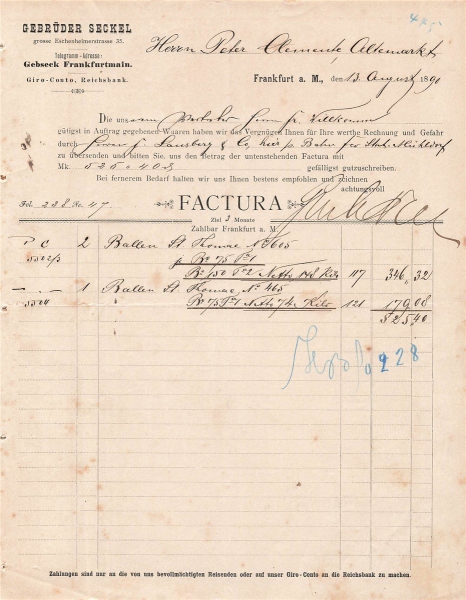 GEBRÜDER SECKEL
grosse Eschenheimerstrasse 35.
Telegramm-Adresse:
Gebseck Frankfurtmain.
Giro-Conto, Reichsbank.
Herrn Peter Clemente, Altemarkt
Frankfurt a. M., den 13. August 1891
Die uns Herrn
gütigst in Auftrag gegebenen Waaren haben wir das Vergnügen Ihnen für Ihre werthe Rechnung und Gefahr
durch Herren J. & Co, hier p. Bahn
zu übersenden und bitten Sie, uns den Betrag der untenstehenden Factura mit
Mk. 525.40 gefälligst gutzuschreiben.
Bei fernerem Bedarf halten wir uns Ihnen bestens empfohlen und zeichnen
achtungsvoll
Fol. 228 No. 47
FACTURA
Ziel 3 Monate
Zahlbar Frankfurt a. M.
P C 2 Ballen St. Thomae No 605
5502/3
Netto 148 Kilo 117 346,32
1 Ballen St. Thomae No 465
5504 Netto 74 Kilo 121 179,08
525,40
228
Zahlungen sind nur an die von uns bevollmächtigten Reisenden oder auf unser Giro-Conto an die Reichsbank zu machen.